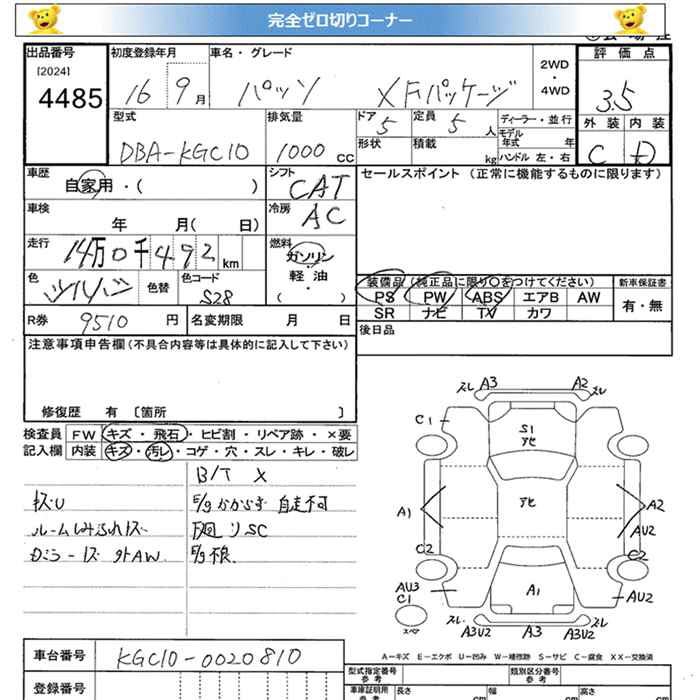 完全ゼロ切りコーナー
出品番号
[2024]
4485
初度登録年月
16 9月
車名・グレード
パッソ XFパッケージ
2WD
・
4WD
評価点
3.5
外装 内装
C D
型式
DBA-KGC10
排気量
1000 cc
ドア
5
定員
5 人
形状
積載
kg
ディーラー・並行
モデル
年式 年
ハンドル 左・右
車歴
自家用・( )
シフト
CAT
車検
年 月( 日)
冷房
AC
走行
14万0千492 km
燃料
ガソリン
軽・油
・
( )
色
シルバー
色替
色コード
S28
R券 9510 円
名変期限 月 日
セールスポイント (正常に機能するものに限ります)
装備品 (純正品に限り○をつけてください)
PS PW ABS エアB AW
SR ナビ TV カワ
新車保証書
有・無
後日品
注意事項申告欄(不具合内容等は具体的に記入して下さい)
修復歴 有 〔箇所 〕
検査員
記入欄
FW キズ・飛石・ヒビ割・リペア跡・×要
内装 キズ・汚レ・コゲ・穴・スレ・キレ・破レ
B/T X
キズU
E/gかからず 自走不可
ルームしみふれキズ
下廻りSC
ミラーキズ 外AW
E/g不良
スレ A3 A2 スレ
C1
S1
アセ
A1
アセ
A2
AU2
C2
C2
AU3
C1
A1
AU2
スペア
スレ
A3U2
A3
スレ
A3U2
A―キズ E―エクボ U―凹み W―補修跡 S―サビ C―腐食 XX―交換済
車台番号
KGC10-0020810
登録番号
型式指定番号
参考
類別区分番号
参考
車庫証明用
参考
長さ
cm
幅
cm
高さ
cm